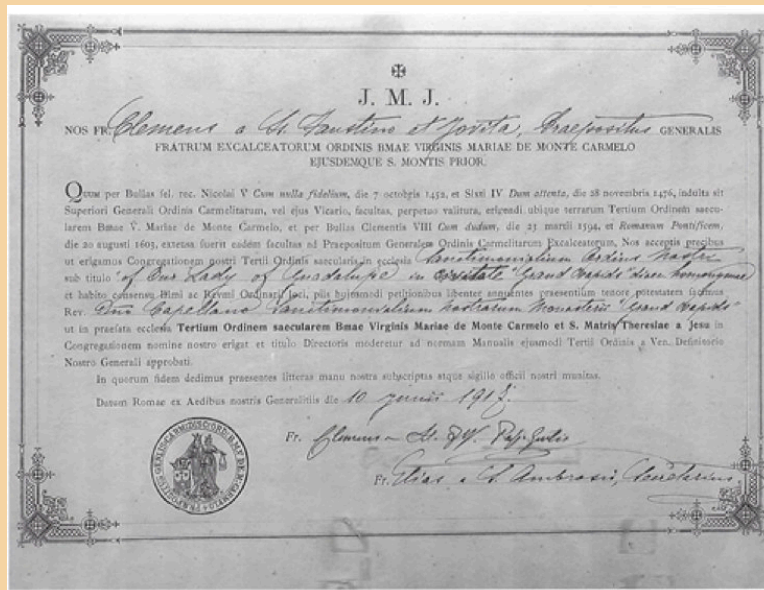 J. M. J.
NOS FR. Clemens a SS. Faustino et Jovita, Praepositus GENERALIS
FRATRUM EXCALCEATORUM ORDINIS BMAE VIRGINIS MARIAE DE MONTE CARMELO
EJUSDEMQUE S. MONTIS PRIOR.
QUUM per Bullas fel. rec. Nicolai V Cum nulla fidelium, die 7 octobris 1452, et Sixti IV Dum attenta, die 28 novembris 1476, indulta sit
Superiori Generali Ordinis Carmelitarum, vel ejus Vicario, facultas, perpetuo valitura, erigendi ubique terrarum Tertium Ordinem saecu-
larem Bmae V. Mariae de Monte Carmelo, et per Bullas Clementis VIII Cum dudum, die 23 martii 1594, et Romanum Pontificem,
die 20 augusti 1603, extensa fuerit eadem facultas ad Praepositum Generalem Ordinis Carmelitarum Excalceatorum, Nos acceptis precibus
ut erigamus Congregationem nostri Tertii Ordinis saecularis in ecclesia Sanctimonialium Ordinis nostri
sub titulo "of Our Lady of Guadalupe" in civitate "Grand Rapids" dioec. homonymae
et habito consensu Illmi ac Revmi Ordinarii loci, piis hujusmodi petitionibus libenter annuentes praesentium tenore potestatem facimus
Rev. Dno Capellano Sanctimonialium nostratum Monasterii "Grand Rapids"
ut in praefata ecclesia Tertium Ordinem saecularem Bmae Virginis Mariae de Monte Carmelo et S. Matris Theresiae a Jesu in
Congregationem nomine nostro erigat et titulo Directoris moderetur ad normam Manualis ejusmodi Tertii Ordinis a Ven. Definitorio
Nostro Generali approbati.
In quorum fidem dedimus praesentes litteras manu nostra subscriptas atque sigillo officii nostri munitas.
Datum Romae ex Aedibus nostris Generalitiis die 10 junii 191
Fr. Clemens a SS.
Fr. Elias a S. Ambrosio, Secretarius